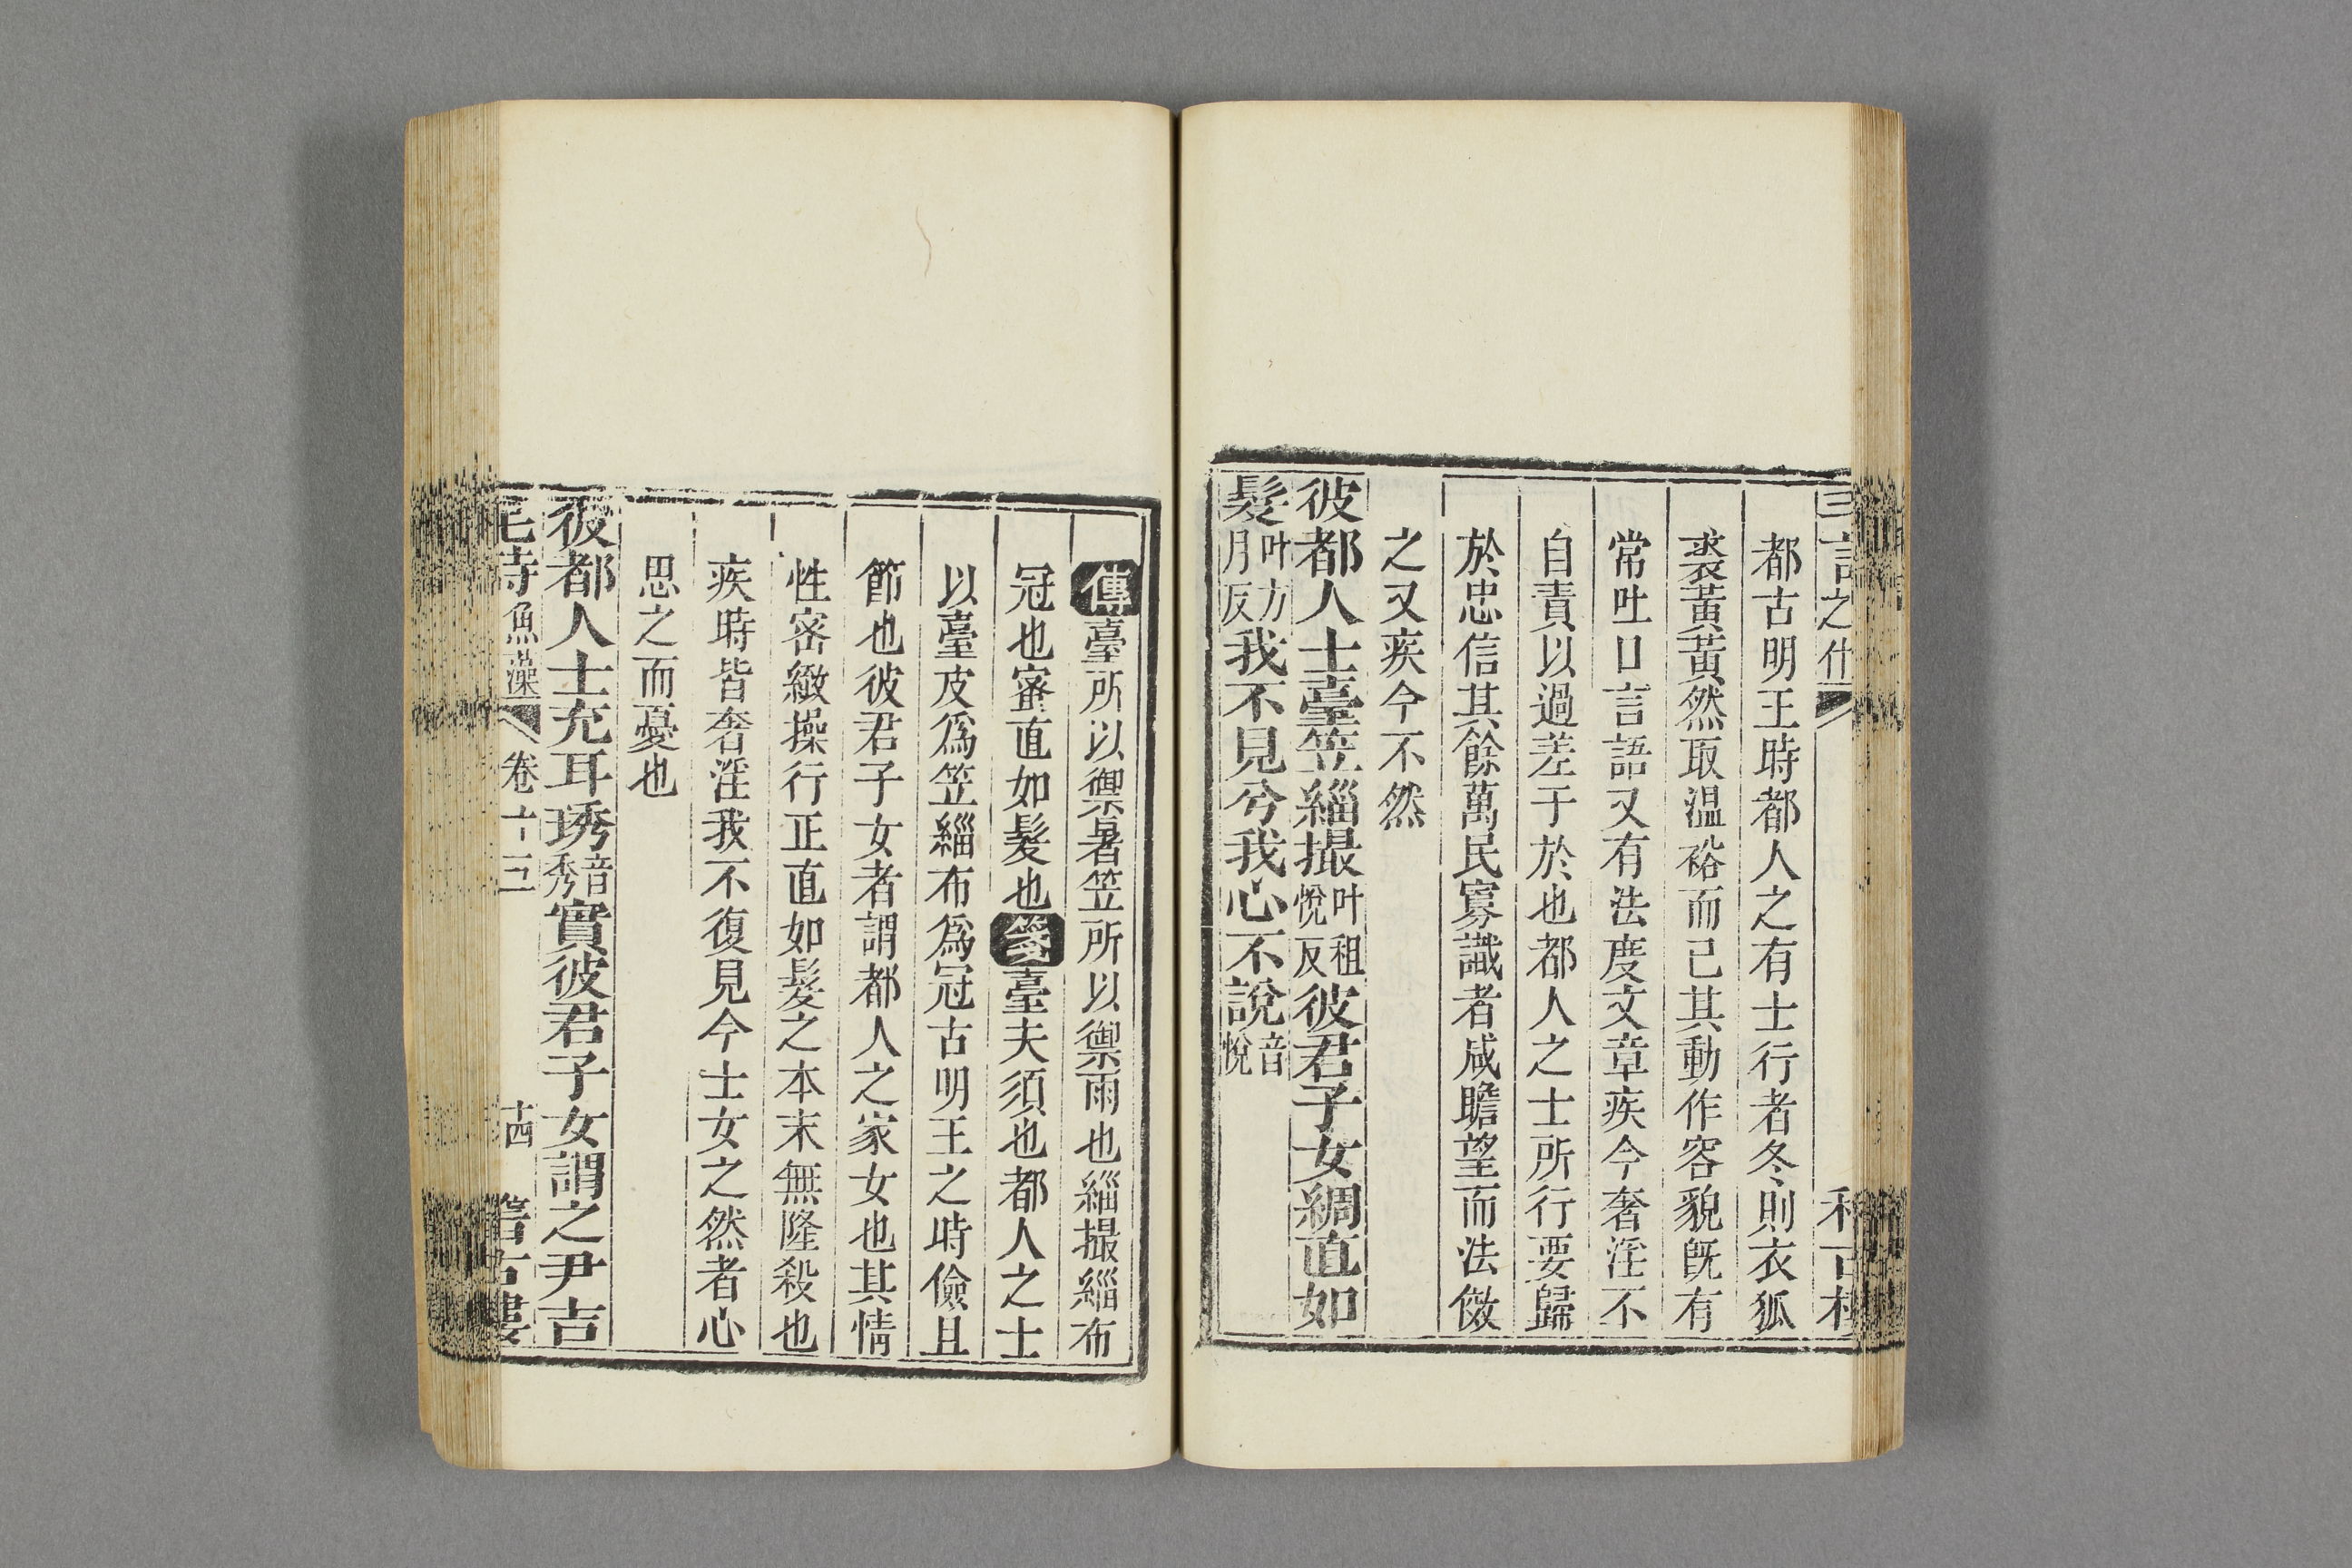 言之什
都古明王時都人之有士行者冬則衣狐
裘黃黃然取温裕而已其動作容貌旣有
常吐口言語又有法度文章疾今奢淫不
自責以過差于於也都人之士所行要歸
於忠信其餘萬民寡識者咸瞻望而法儆
之又疾今不然
彼都人士臺笠緇撮叶租悅反彼君子女綢直如
髮叶方月反我不見兮我心不說音悅
傳臺所以禦暑笠所以禦雨也緇撮緇布
冠也宻直如髮也箋臺夫須也都人之士
以臺皮爲笠緇布爲冠古明王之時儉且
節也彼君子女者謂都人之家女也其情
性宻緻操行正直如髮之本末無隆殺也
疾時皆奢淫我不復見今士女之然者心
思之而憂也
彼都人士充耳琇音秀實彼君子女謂之尹吉
毛詩魚藻 卷十三 十四 古樓